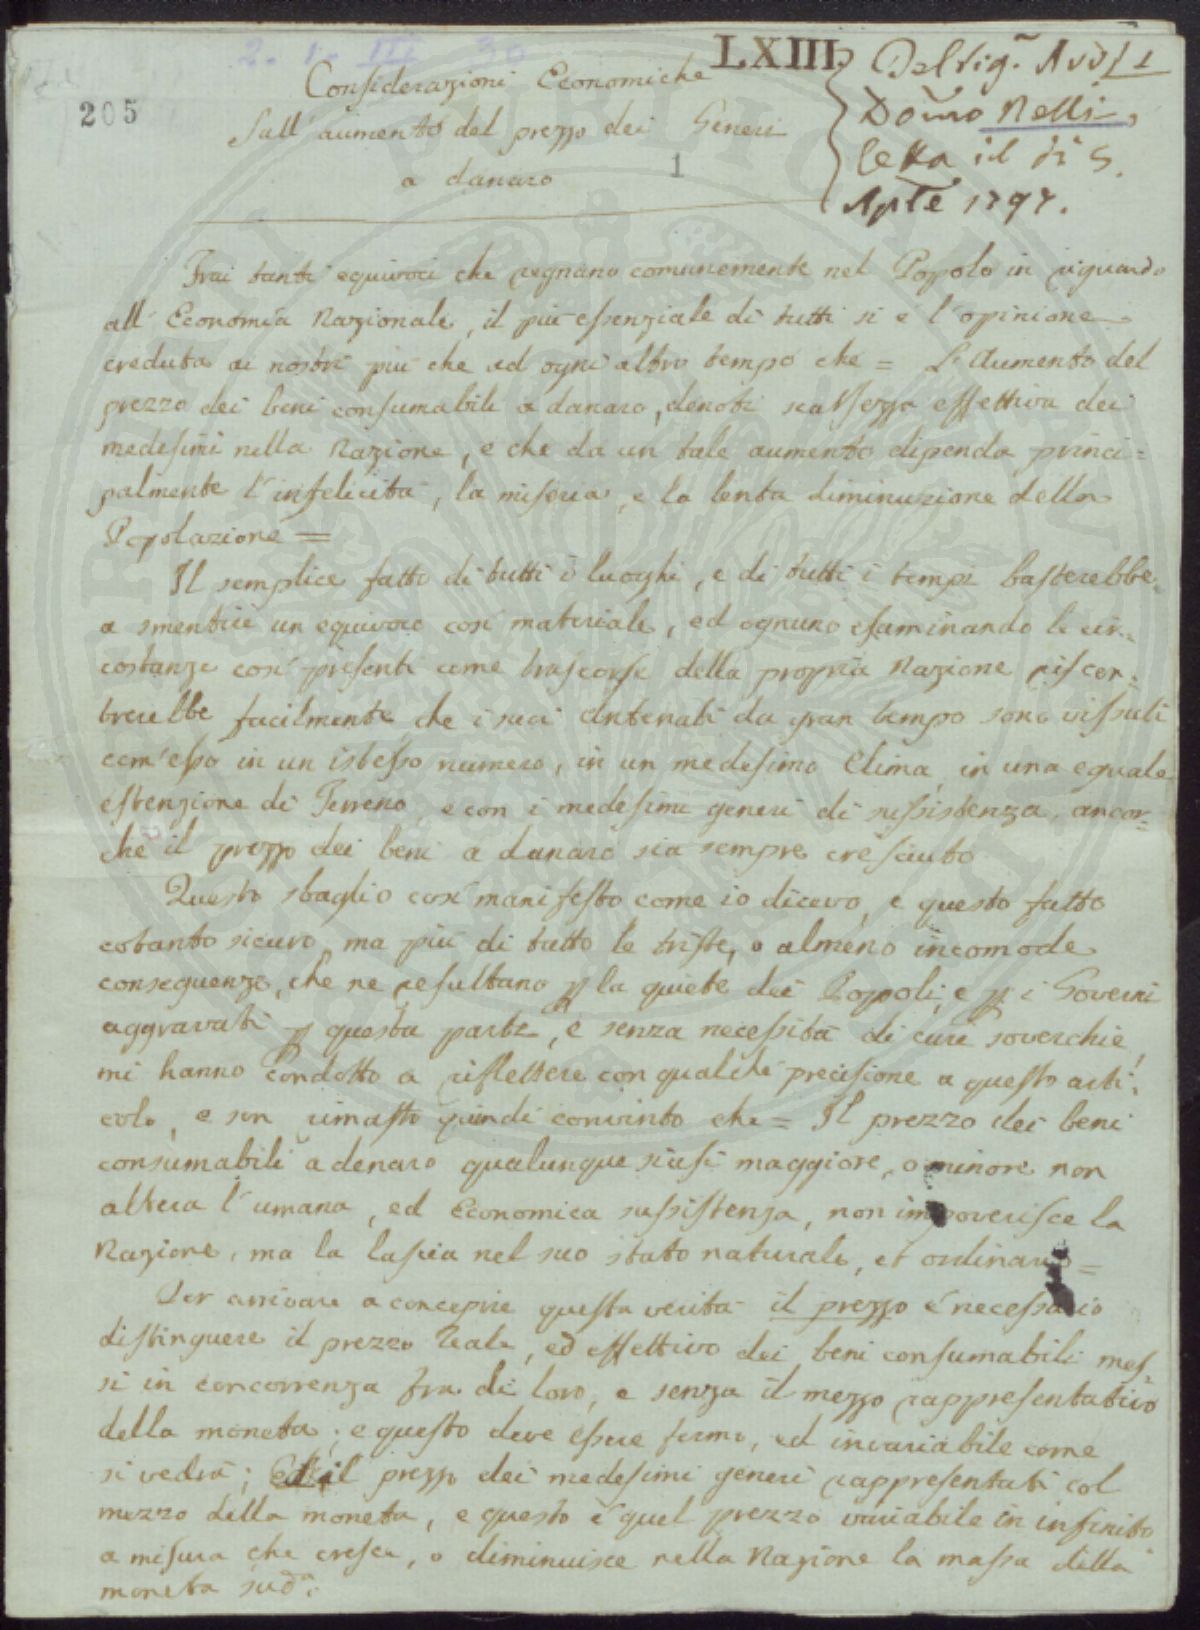 2. 1. III 30
LXIII.
205
Considerazioni Economiche
Sull'aumento del prezzo dei Generi
a danaro
1
Del Sig.r Aud/1
Dom.co Nelli,
letta il dì 5.
Aple 1797.
Frai tanti equivoci che regnano comunemente nel Popolo in riguardo
all'Economia Nazionale, il più essenziale di tutti si è l'opinione
creduta ai nostri più che ad ogni altro tempo che = L'Aumento del
prezzo dei beni consumabili a danaro, denoti scarsezza effettiva dei
medesimi nella Nazione, e che da un tale aumento dipenda princi=
palmente l'infelicità, la miseria, e la lenta diminuzione della
Popolazione =
Il semplice fatto di tutti i luoghi, e di tutti i tempi basterebbe
a smentire un equivoco così materiale, ed ognuno esaminando le cir=
costanze così presenti come trascorse della propria Nazione riscon=
trerebbe facilmente che i suoi Antenati da gran tempo sono vissuti
com'esso in un istesso numero, in un medesimo Clima, in una eguale
estenzione di Terreno, e con i medesimi generi di sussistenza, ancor=
chè il prezzo dei beni a danaro sia sempre cresciuto
Questo sbaglio così manifesto come io dicevo, e questo fatto
cotanto sicuro, ma più di tutto le triste, o almeno incomode
conseguenze, che ne resultano p la quiete dei Popoli, e p i Governi
aggravati p questa parte, e senza necessità di cure soverchie,
mi hanno condotto a riflettere con qualche precisione a questo arti=
colo, e son rimasto quindi convinto che = Il prezzo dei beni
consumabili a denaro qualunque siasi maggiore, o minore non
altera l'umana, ed Economica sussistenza, non impoverisce la
Nazione, ma la lascia nel suo stato naturale, et ordinario =
Per arrivare a concepire questa verità il prezzo è necessario
distinguere il prezzo reale, ed effettivo dei beni consumabili mes=
si in concorrenza fra di loro, e senza il mezzo rappresentativo
della moneta; e questo deve essere fermo, ed invariabile come
si vedrà; Ed il prezzo dei medesimi generi rappresentati col
mezzo della moneta, e questo è quel prezzo variabile in infinito
a misura che cresce, o diminuisce nella Nazione la massa della
moneta sud.a: